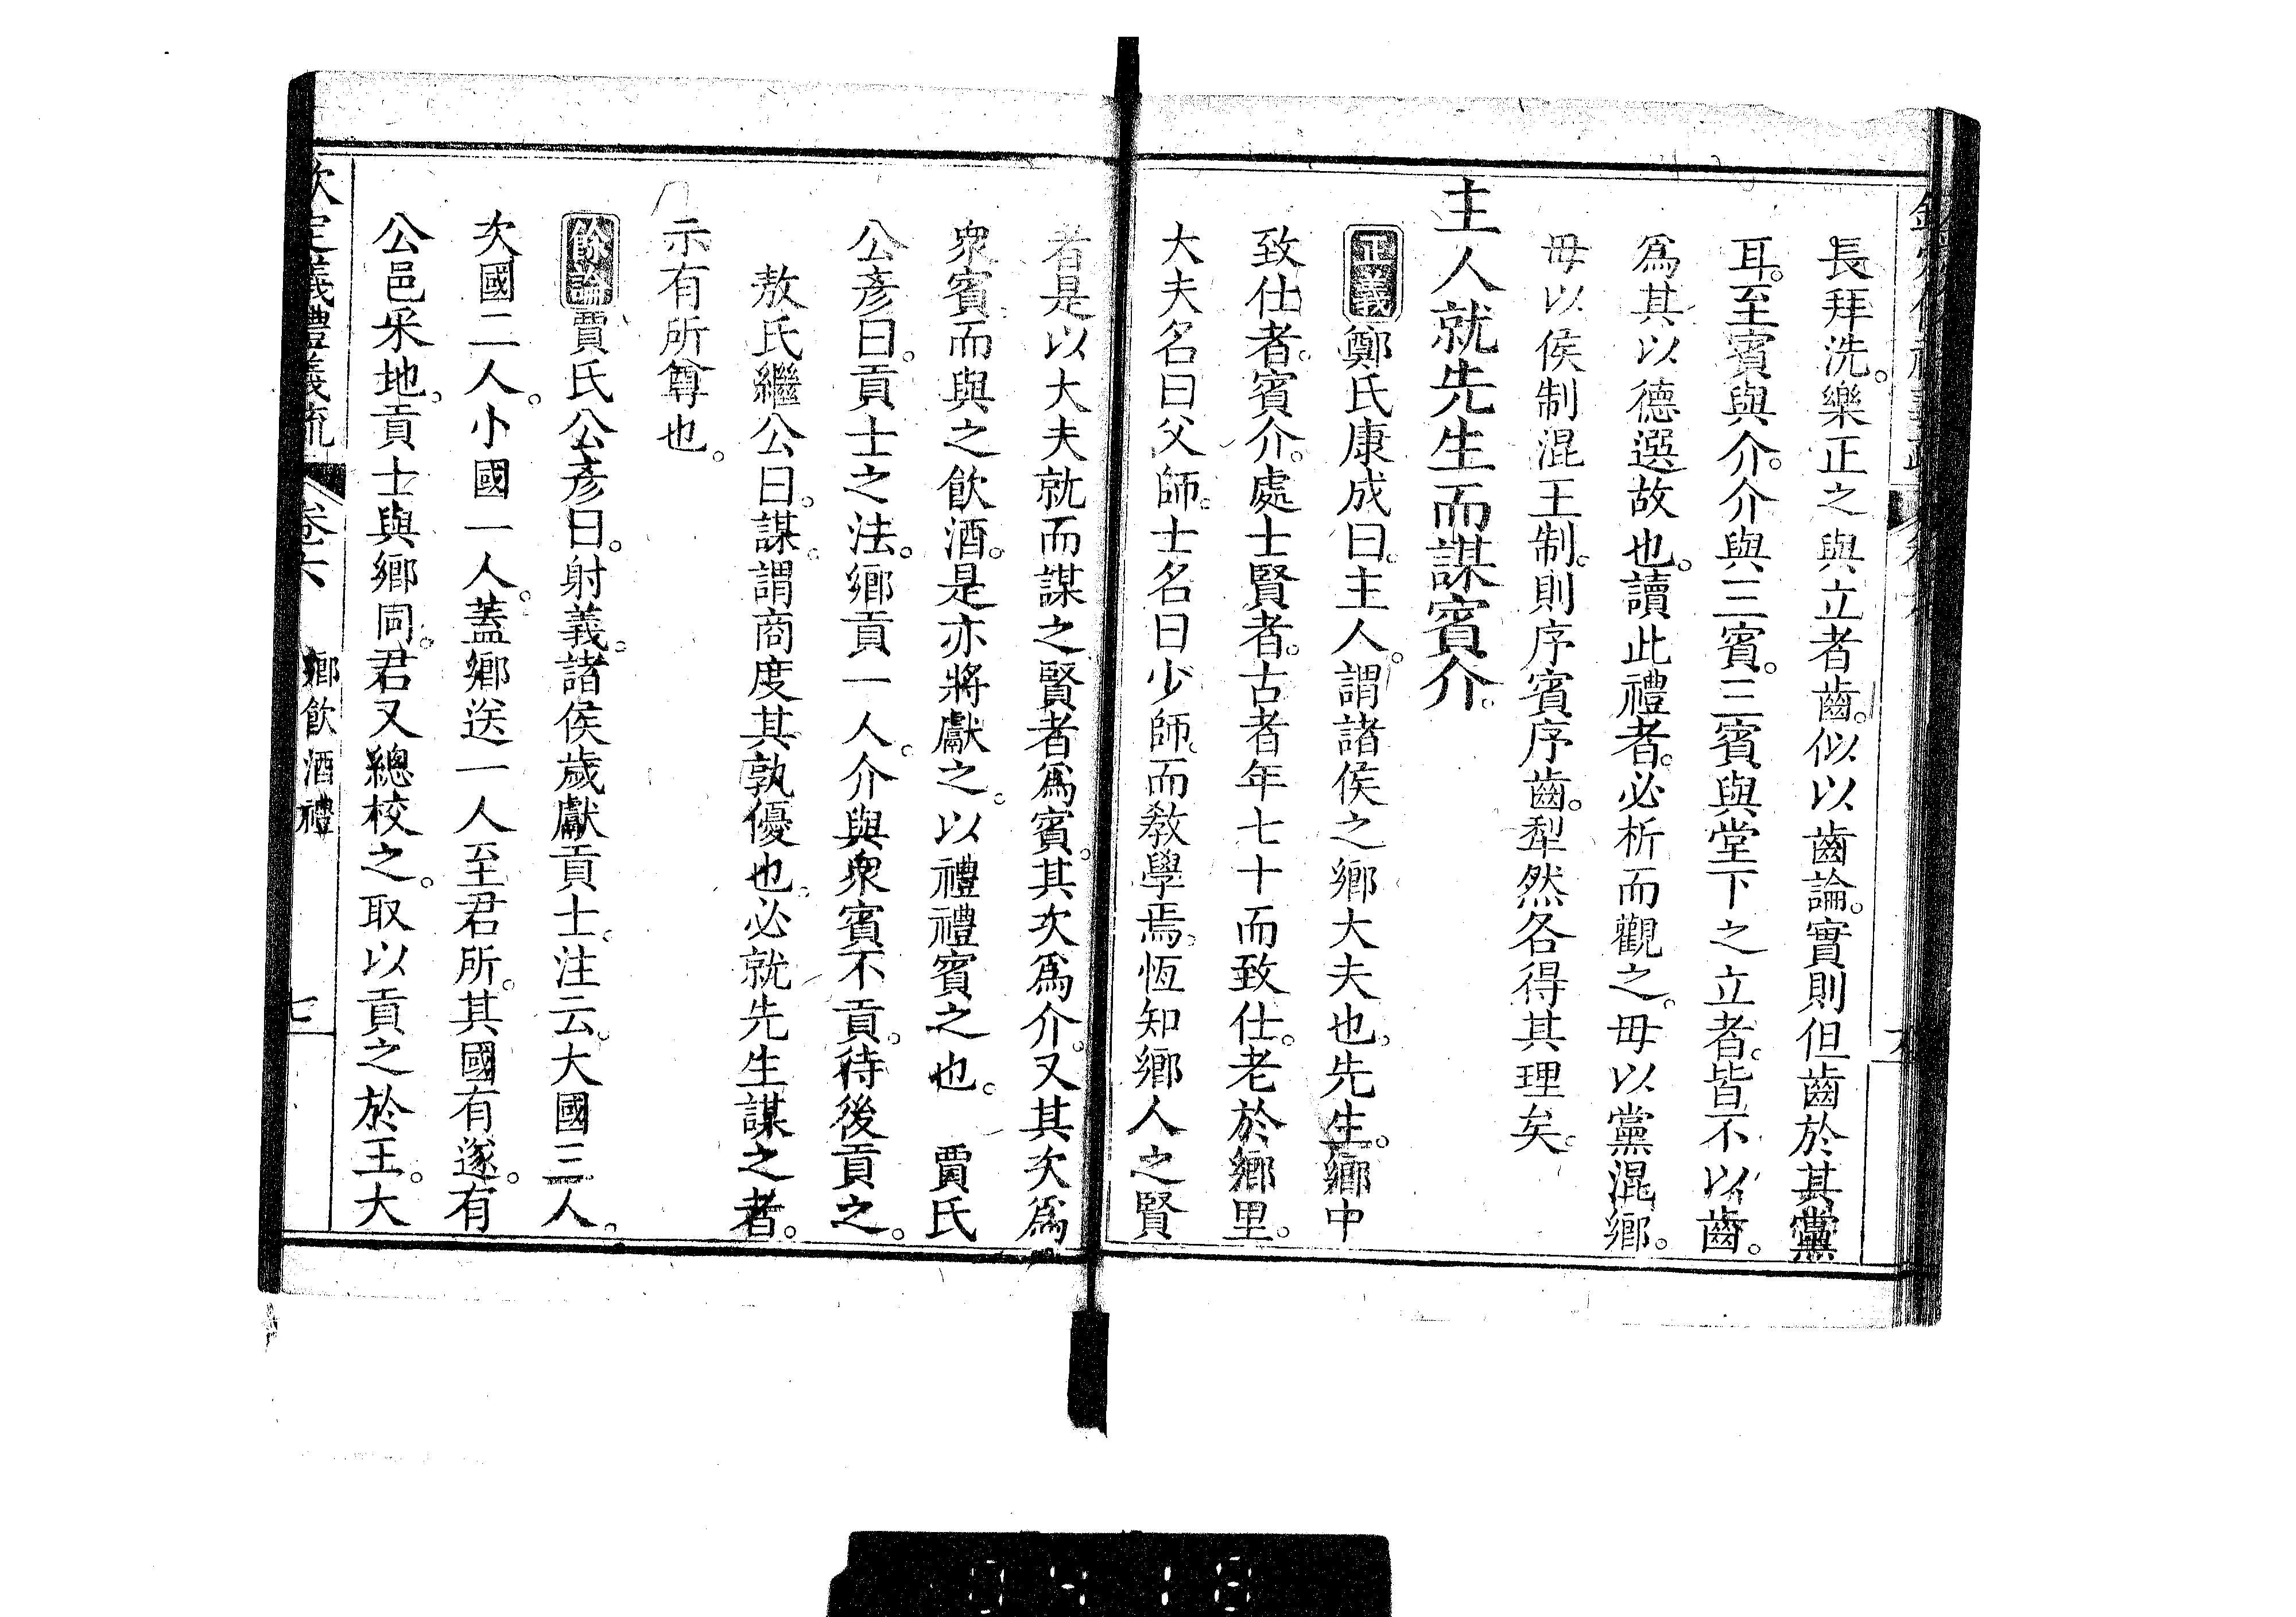 長拜洗。樂正之與立者齒。似以齒論。實則但齒於其黨
耳。至賓與介。介與三賓。三賓與堂下之立者。皆不以齒。
爲其以德選故也。讀此禮者。必析而觀之。毋以黨混鄉。
毋以侯制混王制。則序賓序齒。犁然各得其理矣。
主人就先生而謀賓介。
正義鄭氏康成曰。主人。謂諸侯之鄉大夫也。先生。鄉中
致仕者。賓介。處士賢者。古者年七十而致仕。老於鄉里。
大夫名曰父師。士名曰少師。而敎學焉。恆知鄉人之賢
者是以大夫就而謀之賢者爲賓。其次爲介。又其次爲
衆賓。而與之飲酒。是亦將獻之。以禮禮賓之也。 賈氏
公彥曰。貢士之法。鄉貢一人。介與衆賓不貢。待後貢之。
敖氏繼公曰。謀。謂商度其孰優也。必就先生謀之者。
示有所尊也。
餘論賈氏公彥曰。射義。諸侯歲獻貢士。注云。大國三人。
次國二人。小國一人。蓋鄉送一人至君所。其國有遂。有
公邑采地。貢士與鄉同。君又總校之。取以貢之於王。大
欽定義禮義疏 卷六 鄉飲酒禮 七
0418